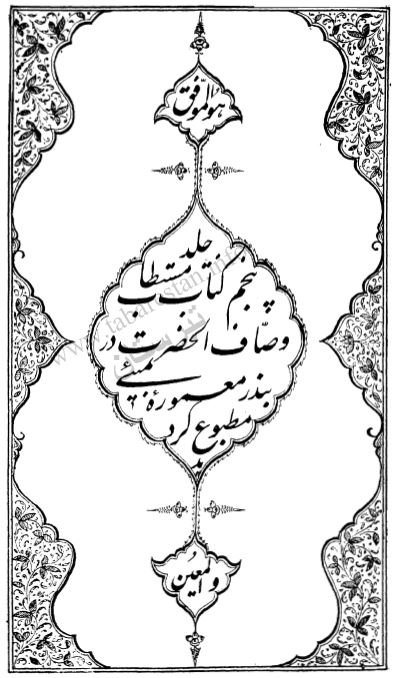 هو الموفق
جلد
پنجم کتاب مستطاب
وصّاف الحضرت در
بندر معمورهٔ بمبئی
مطبوع کردید
و المعین
www.tabarestan.info